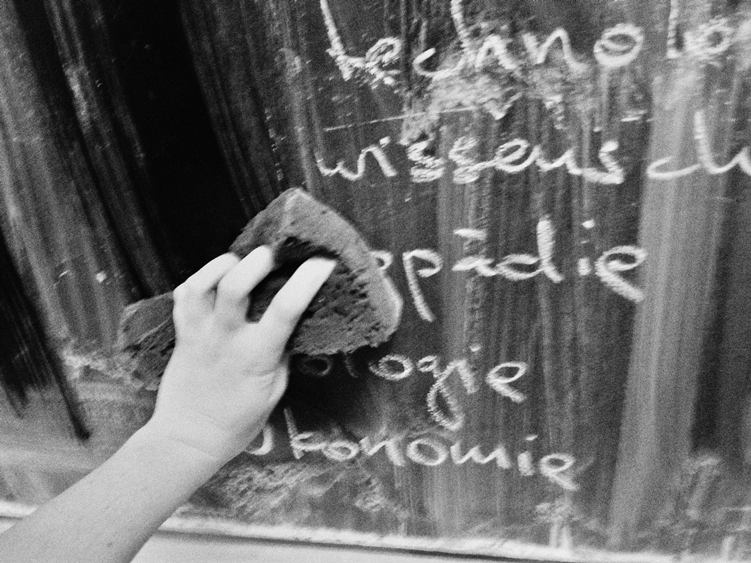 technolo
wissensch
pädie
ologie
ökonomie